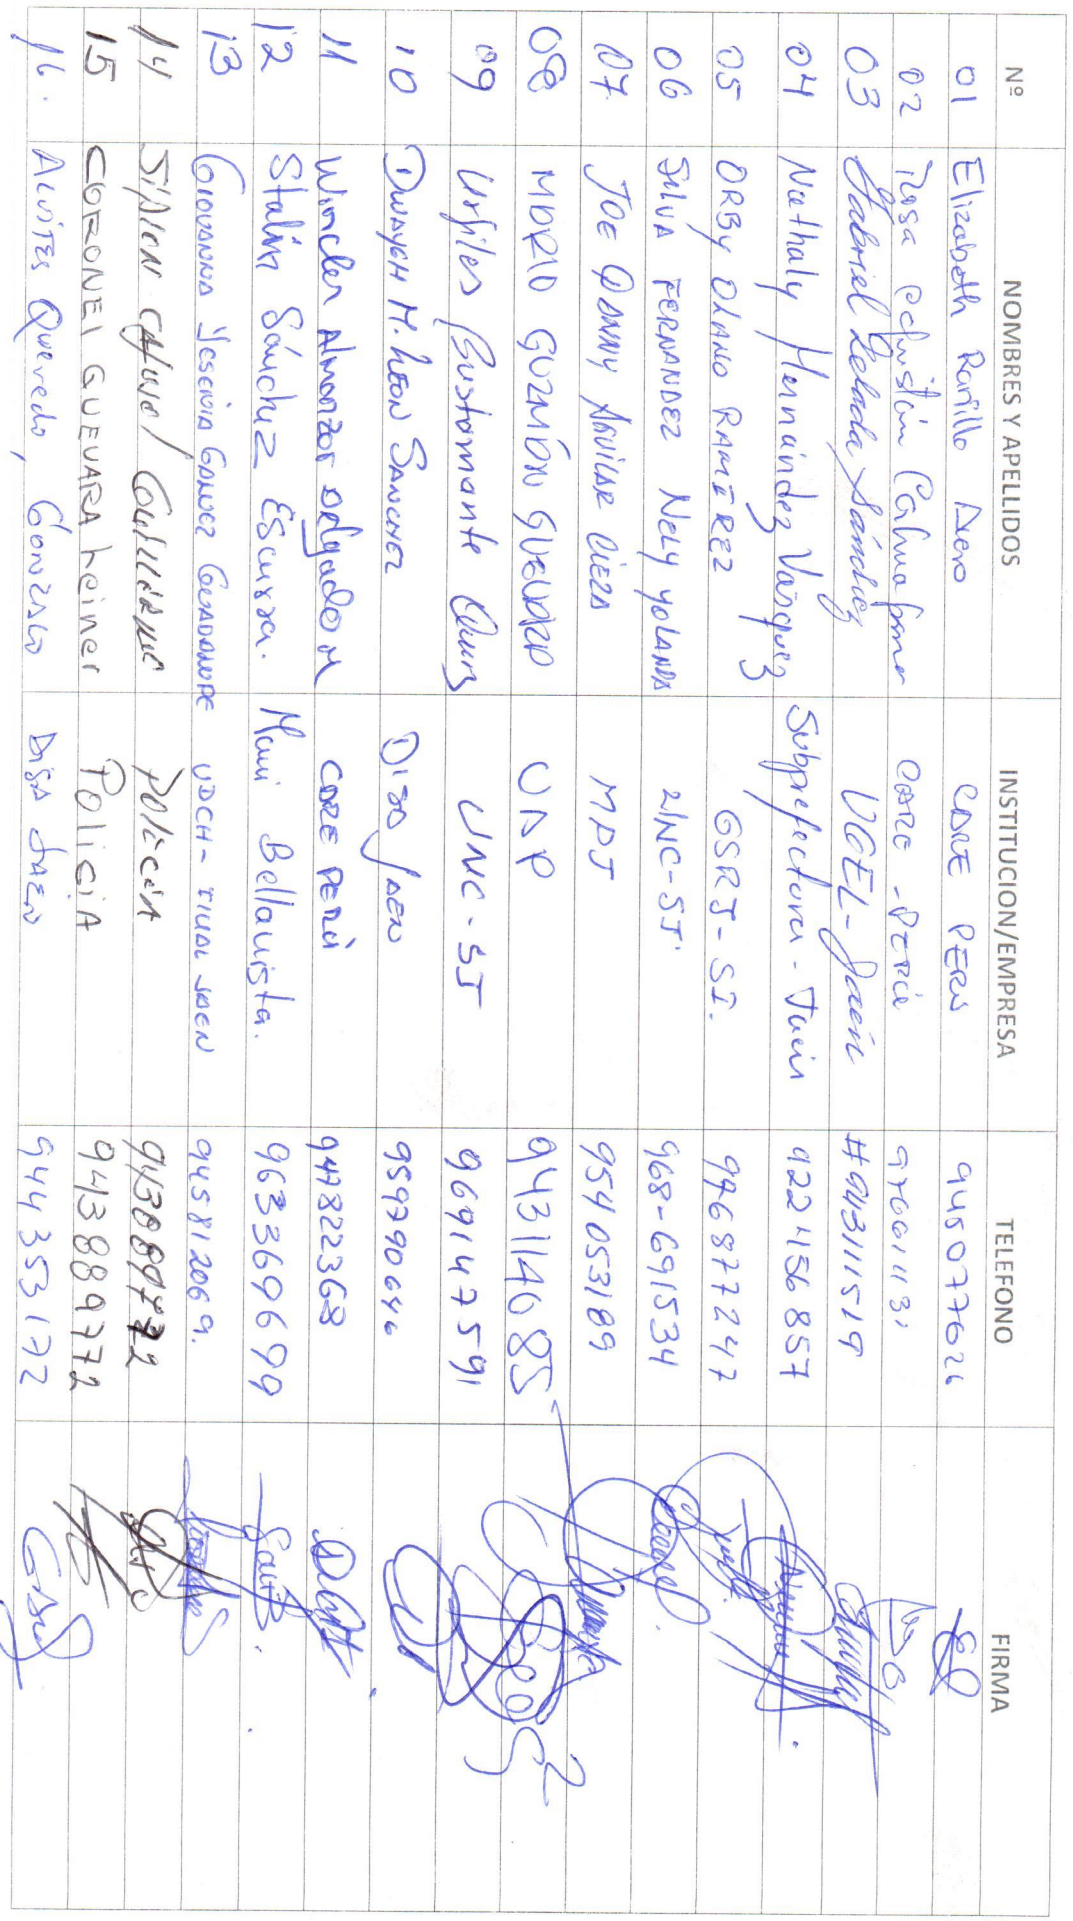 Nº NOMBRES Y APELLIDOS INSTITUCION/EMPRESA TELEFONO FIRMA
01 Elizabeth Ramillo CARE PERU 945077626
02 Rosa CARE - PERÚ
03 Gabriel Zelada Sánchez UGEL - Jaén #943111519
04 Nathaly Hernández Vásquez Subprefectura - Jaén 922456857
05 ORBY OLANO RAMÍREZ GSRJ - SI. 976877247
06 SILVA FERNANDEZ NELY YOLANDA UNC-SJ 968-691534
07 JOE DANNY AGUILAR CIEZA MPJ 954053189
08 MARIO GUZMÁN GUEVARA UAP 943114685
09 Urfiles Bustamante UNC-SJ 969147591
10 DWAYGH M. LEON SANCHEZ DISA JAEN 959790646
11 Wincler Almanzor Delgado M CARE PERÚ 947822368
12 Stalin Sánchez Escurra. Muni Bellavista. 963369699
13 GIOVANNA YESENIA GAMEZ GUADALUPE UDCH - FILIAL JAEN 945812069.
14 POLICIA
15 CORONEL GUEVARA Leiner POLICIA 943889772
16. ALVITES Quevedo, GONZALO DISA JAEN 944353172